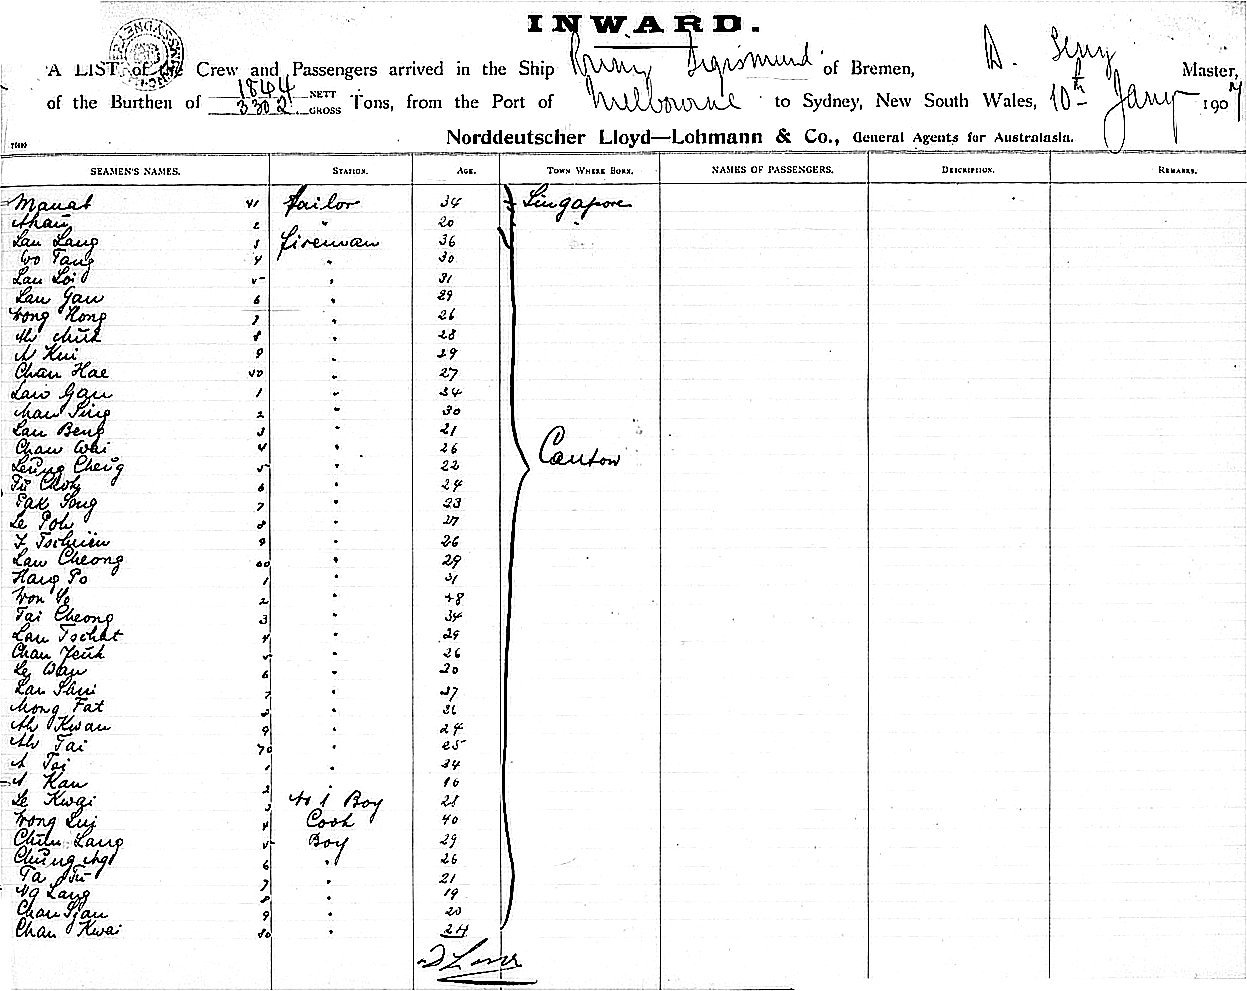 INWARD.
A LIST of the Crew and Passengers arrived in the Ship Prinz Sigismund of Bremen, D. Master,
of the Burthen of 1844 NETT
3302 GROSS Tons, from the Port of Melbourne to Sydney, New South Wales, 10th Jany 1907
Norddeutscher Lloyd—Lohmann & Co., General Agents for Australasia.
SEAMEN'S NAMES. STATION. AGE. TOWN WHERE BORN. NAMES OF PASSENGERS. DESCRIPTION. REMARKS.
Manat 41 Sailor 34 Singapore
2 " 20
Lau Lang 3 fireman 36
Wo Tang 4 " 30
Lau Loi 5 " 31
Lau Gau 6 " 29
Wong Kong 7 " 26
8 " 28
A Kui 9 " 29
Chan Hae 50 " 27
Law Gau 1 " 34
Chan Sing 2 " 30
Lau Beng 3 " 21
Chan Wai 4 " 26 Canton
Leung Cheug 5 " 22
Fu Choh 6 " 24
Pak Song 7 " 23
Le Poh 8 " 27
9 " 26
Lau Cheong 60 " 29
Hang Po 1 " 31
Won Yo 2 " 48
Tai Cheong 3 " 34
Lau Tschat 4 " 29
Chan 5 " 26
Le Wan 6 " 20
Lau Shui 7 " 37
Mong Fat 8 " 31
Ah Kwan 9 " 24
Ah Tai 70 " 25
A Tai 1 " 34
A Kau 2 " 16
Le Kwai 3 No 1 Boy 28
Wong Lui 4 Cook 40
Chun Lang 5 Boy 29
Chung Ng 6 " 26
Ta Fu 7 " 21
Ng Lang 8 " 19
Chau Sjau 9 " 20
Chan Kwai 80 " 24